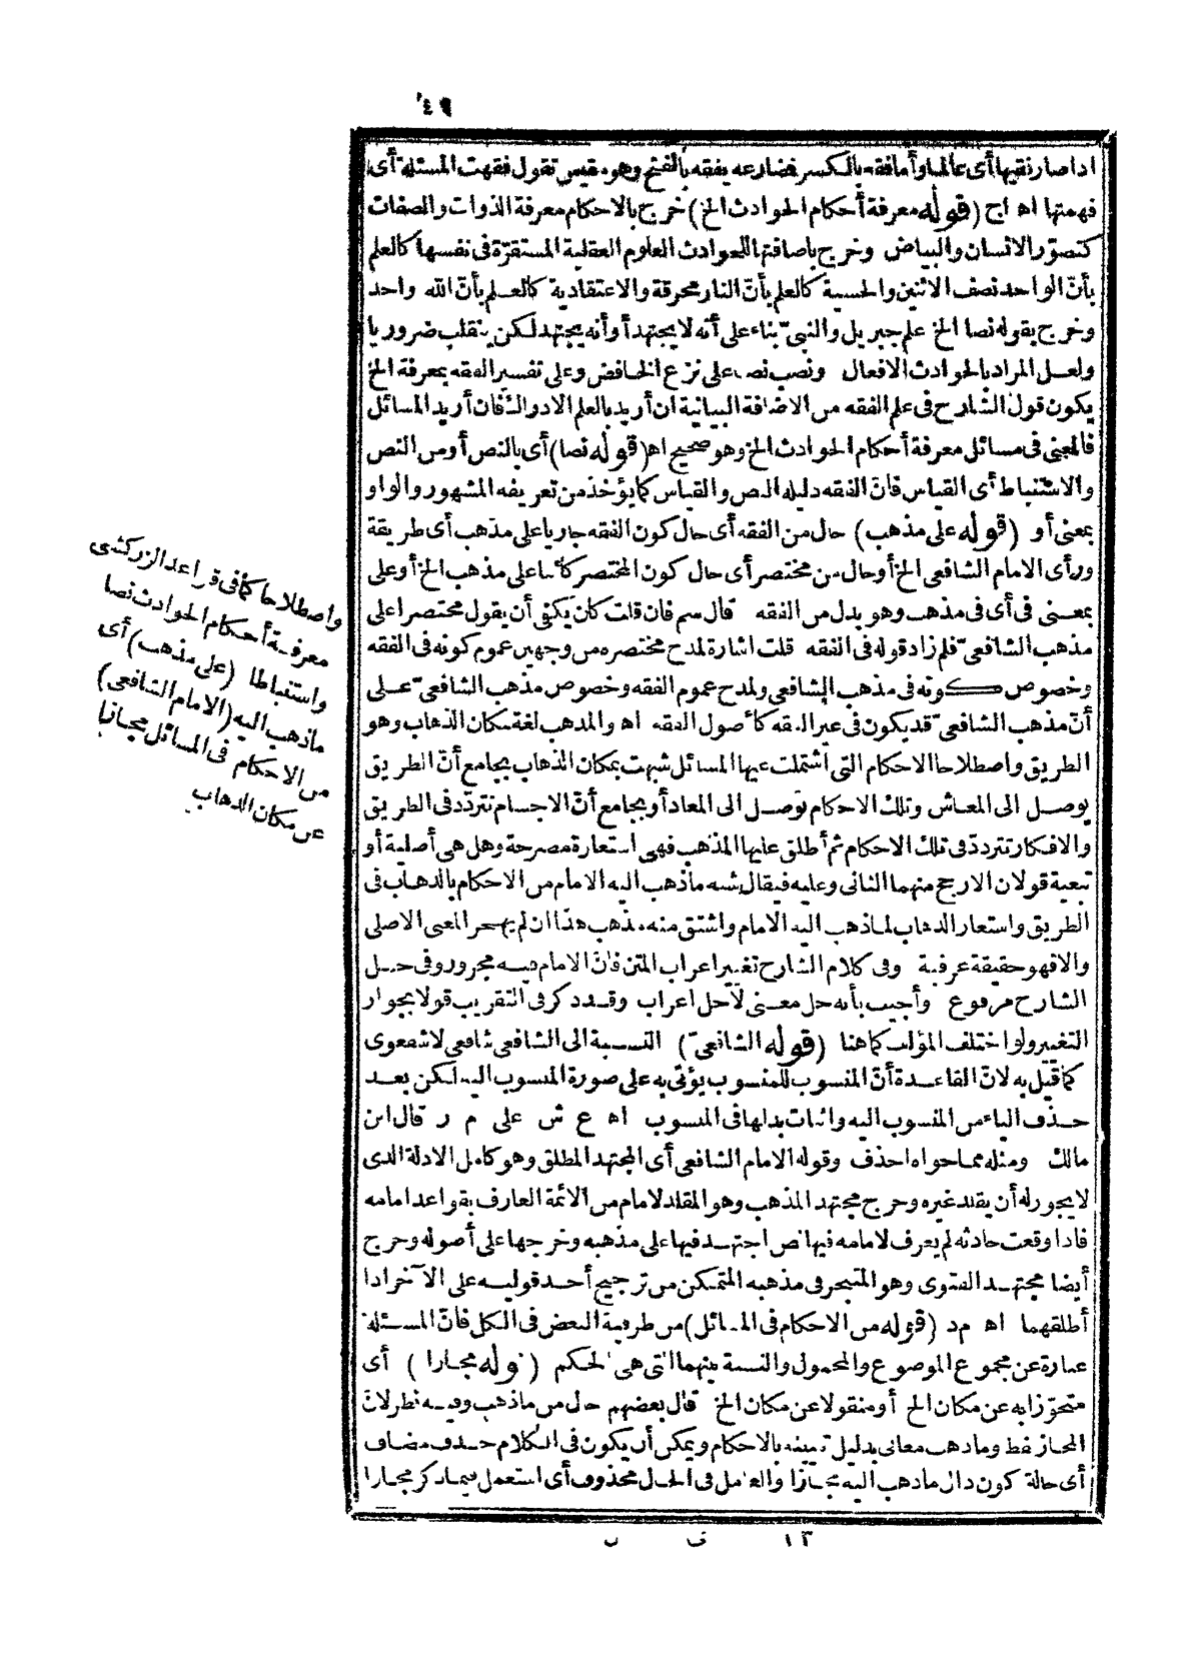 ٤٩
اذا صار فقيها أى عالما وأما فقه بالكسر فضارعه يفقه بالفتح وهو مقيس تقول فقهت المسئلة أى
فهمتها اه اج (قوله معرفة أحكام الحوادث الخ) خرج بالاحكام معرفة الذوات والصفات
كتصوّر الانسان والبياض وخرج باضافتها للحوادث العلوم العقلية المستقرّة فى نفسها كالعلم
بأنّ الواحد نصف الاثنين والحسية كالعلم بأنّ النار محرقة والاعتقادية كالعلم بأنّ الله واحد
وخرج بقوله نصا الخ علم جبريل والنبىّ بناء على أنه لا يجتهد أو أنه يجتهد لكن ينقلب ضروريا
ولعل المراد بالحوادث الافعال ونصب نصا على نزع الخافض وعلى تفسير الفقه بمعرفة الخ
يكون قول الشارح فى علم الفقه من الاضافة البيانية ان أريد بالعلم الادراك فان أريد المسائل
فالمعنى فى مسائل معرفة أحكام الحوادث الخ وهو صحيح اه (قوله نصا) أى بالنص أو من النص
والاستنباط أى القياس فانّ الفقه دليله النص والقياس كما يؤخذ من تعريفه المشهور والواو
بمعنى أو (قوله على مذهب) حال من الفقه أى حال كون الفقه جاريا على مذهب أى طريقة
ورأى الامام الشافعى الخ أو حال من مختصر أى حال كون المختصر كائنا على مذهب الخ أو على
بمعنى فى أى فى مذهب وهو بدل من الفقه قال سم فان قلت كان يكفى أن يقول مختصرا على
مذهب الشافعىّ فلم زاد قوله فى الفقه قلت اشارة لمدح مختصره من وجهين عموم كونه فى الفقه
وخصوص كونه فى مذهب الشافعى ولمدح عموم الفقه وخصوص مذهب الشافعىّ على
أنّ مذهب الشافعىّ قد يكون فى غير الفقه كأصول الفقه اه والمذهب لغة مكان الذهاب وهو
الطريق واصطلاحا الاحكام التى اشتملت عليها المسائل شبهت بمكان الذهاب بجامع أنّ الطريق
يوصل الى المعاش وتلك الاحكام توصل الى المعاد أو بجامع أنّ الاجسام تتردّد فى الطريق
والافكار تتردد فى تلك الاحكام ثم أطلق عليها المذهب فهى استعارة مصرحة وهل هى أصلية أو
تبعية قولان الارجح منهما الثانى وعليه فيقال شبه ما ذهب اليه الامام من الاحكام بالذهاب فى
الطريق واستعار الذهاب لما ذهب اليه الامام واشتق منه مذهب هذا ان لم يهجر المعنى الاصلى
والا فهو حقيقة عرفية وفى كلام الشارح تغيير اعراب المتن فانّ الامام فيه مجرور وفى حل
الشارح مرفوع وأجيب بأنه حل معنى لا حل اعراب وقد ذكر فى التقريب قولا بجواز
التغيير ولو اختلف المؤلف كما هنا (قوله الشافعىّ) النسبة الى الشافعى شافعى لا شفعوى
كما قيل به لانّ القاعدة أنّ المنسوب للمنسوب يؤتى به على صورة المنسوب اليه لكن بعد
حذف الياء من المنسوب اليه واثبات بدلها فى المنسوب اه ع ش على م ر قال ابن
مالك ومثله مما حواه احذف وقوله الامام الشافعى أى المجتهد المطلق وهو كامل الادلة الذى
لا يجوز له أن يقلد غيره وخرج مجتهد المذهب وهو المقلد لامام من الائمة العارف بقواعد امامه
فاذا وقعت حادثه لم يعرف لامامه فيها نص اجتهد فيها على مذهبه وخرجها على أصوله وخرج
أيضا مجتهد الفتوى وهو المتبحر فى مذهبه المتمكن من ترجيح أحد قوليه على الآخر اذا
أطلقهما اه مد (قوله من الاحكام فى المسائل) من ظرفية البعض فى الكل فانّ المسئلة
عبارة عن مجموع الموضوع والمحمول والنسبة بينهما التى هى الحكم (قوله مجازا) أى
متجوّزا به عن مكان الخ أو منقولا عن مكان الخ قال بعضهم حال من ما ذهب وفيه نظر لانّ
المجاز لفظ وما ذهب معانى بدليل تبيينه بالاحكام ويمكن أن يكون فى الكلام حذف مضاف
أى حالة كون دال ما ذهب اليه مجازا والعامل فى الحال محذوف أى استعمل فيما ذكر مجازا
واصطلاحا كما فى قواعد الزركشى
معرفة أحكام الحوادث نصا
واستنباطا (على مذهب) أى
ما ذهب اليه (الامام الشافعى)
من الاحكام فى المسائل مجازا
عن مكان الذهاب
١٣ ى ب